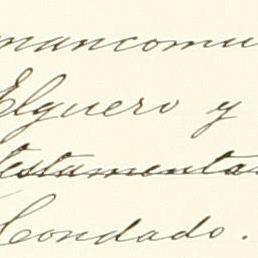 mancomu
Elguero y
Testamenta
Condado.